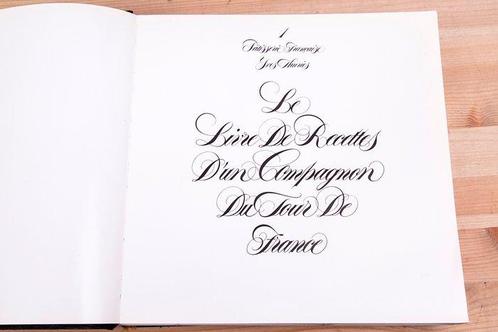 1
Patisserie Francaise
Yves Thuriès
Le
Livre De Recettes
D'un Compagnon
Du Tour De
France